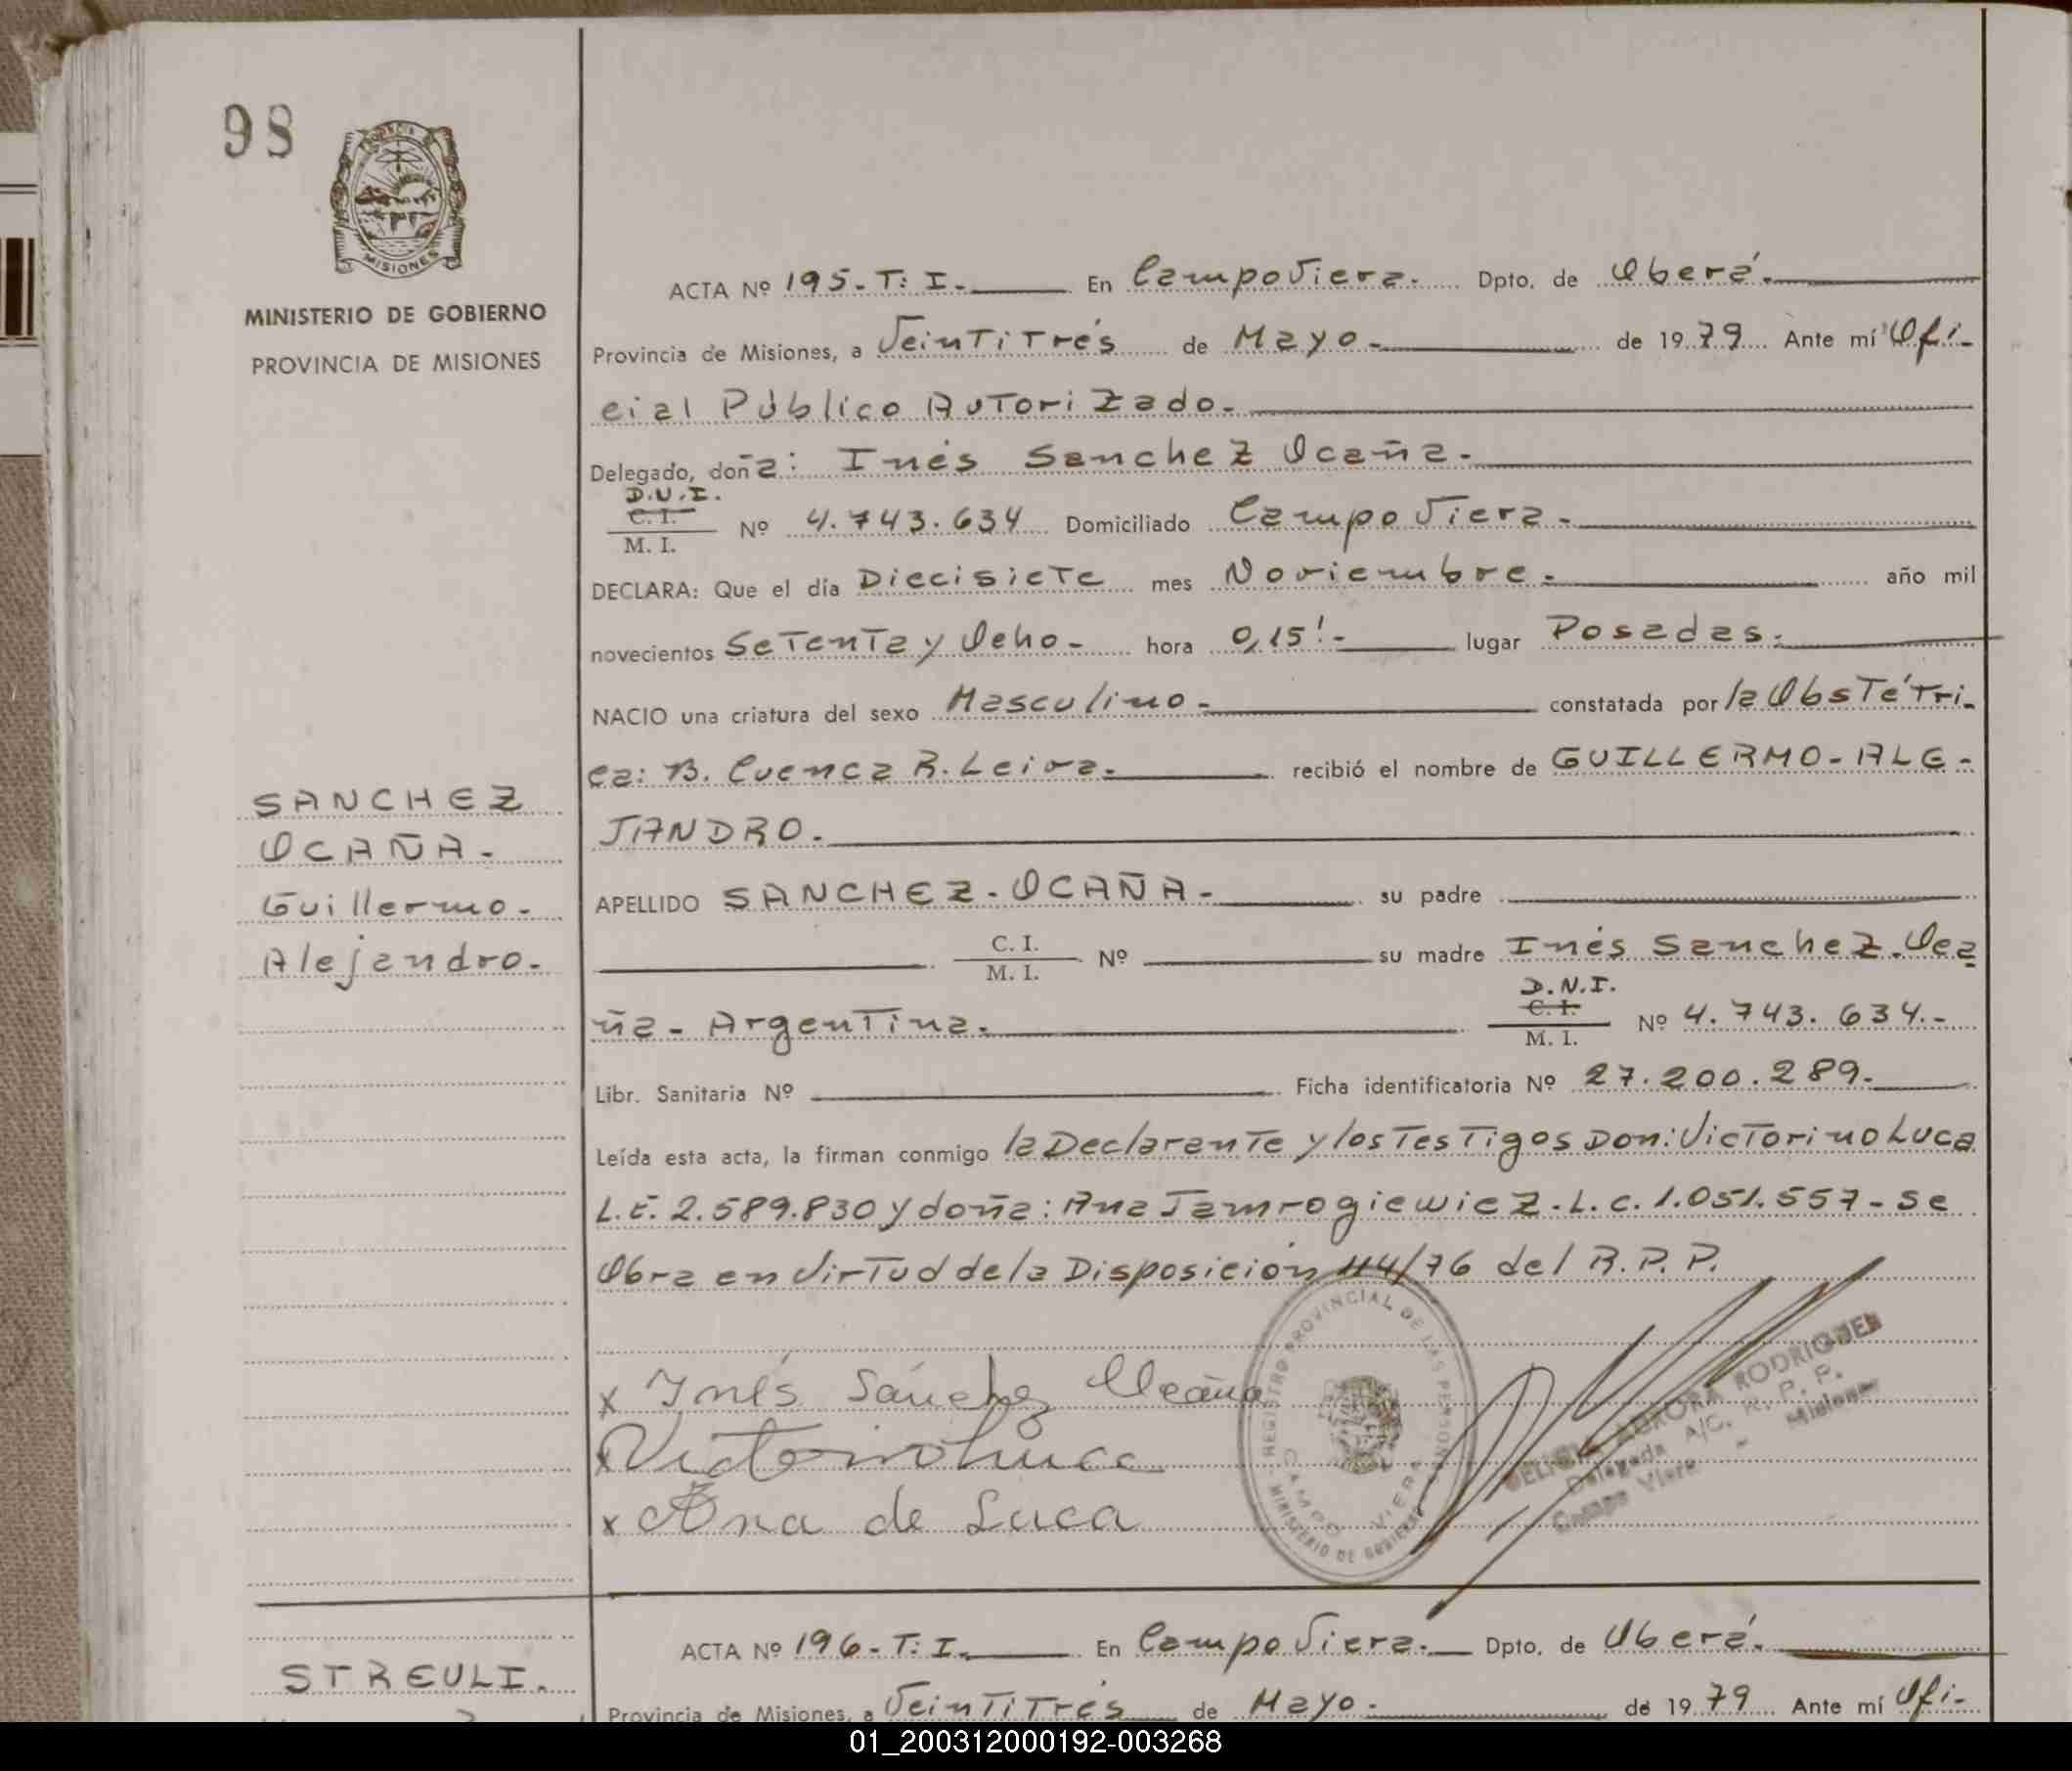 98
MISIONES
MINISTERIO DE GOBIERNO
PROVINCIA DE MISIONES
SANCHEZ
OCAÑA.
Guillermo.
Alejandro.
ACTA Nº 195-T: I. En Campo Viera. Dpto. de Oberá.
Provincia de Misiones, a Veintitrés de Mayo. de 1979 Ante mí Ofi-
cial Público Autorizado.
Delegado, doña: Inés Sanchez Ocaña.
D.N.I.
C. I.
M. I. Nº 4.743.634 Domiciliado Campo Viera.
DECLARA: Que el día Diecisiete mes Noviembre. año mil
novecientos Setenta y Ocho- hora 0,15!- lugar Posadas.
NACIO una criatura del sexo Masculino- constatada por la Obstétri-
ca: B. Cuenca R. Leiva. recibió el nombre de GUILLERMO-ALE-
JANDRO.
APELLIDO SANCHEZ-OCAÑA- su padre
C. I.
M. I. Nº su madre Inés Sanchez.Oca
ña- Argentina. D.N.I.
C. I.
M. I. Nº 4.743.634.-
Libr. Sanitaria Nº Ficha identificatoria Nº 27.200.289.
Leída esta acta, la firman conmigo la Declarante y los Testigos Don: Victorino Luca
L.E. 2.589.830 y doña: Ana Jamrogiewicz. L.C. 1.051.557-Se
Obra en Virtud de la Disposición 114/76 del R.P.P.
x Inés Sánchez Ocaña
x Victorino Luca
x Ana de Luca
REGISTRO PROVINCIAL DE LAS PERSONAS
CAMPO VIERA
MINISTERIO DE GOBIERNO
AURORA RODRIGUEZ
Delegada A/C. R. P. P.
Campo Viera - Misiones
STREULI.
ACTA Nº 196-T: I. En Campo Viera. Dpto. de Oberá.
Provincia de Misiones, a Veintitrés de Mayo. de 1979 Ante mí Ofi-
01_200312000192-003268